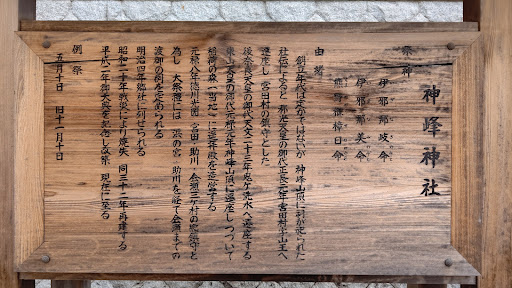 神峰神社
祭神
伊邪那岐命
伊邪那美命
熊野樟日命
由緒
創立年代は定かではないが 神峰山頂に祠が祀られた
社伝によると 称光天皇の御代正長元年宮田村字山王へ
遷座し 宮田村の鎮守とした
後奈良天皇の御代天文二十三年 洗水へ遷座する
東山天皇の御代元禄元年神峰山頂に遷座し つづいて
の東(当地)に遥拝殿を造営する
元禄八年徳川光圀 宮田 助川 会瀬三ケ村の総鎮守と
為し 大祭礼には 浜の宮 助川を経て会瀬までの
渡御の列を定められる
明治四年郷社に列せられる
昭和二十年戦災により焼失 同三十二年再建する
平成二年御大典を記念し改築 現在に至る
例祭
五月三日 旧十一月十日